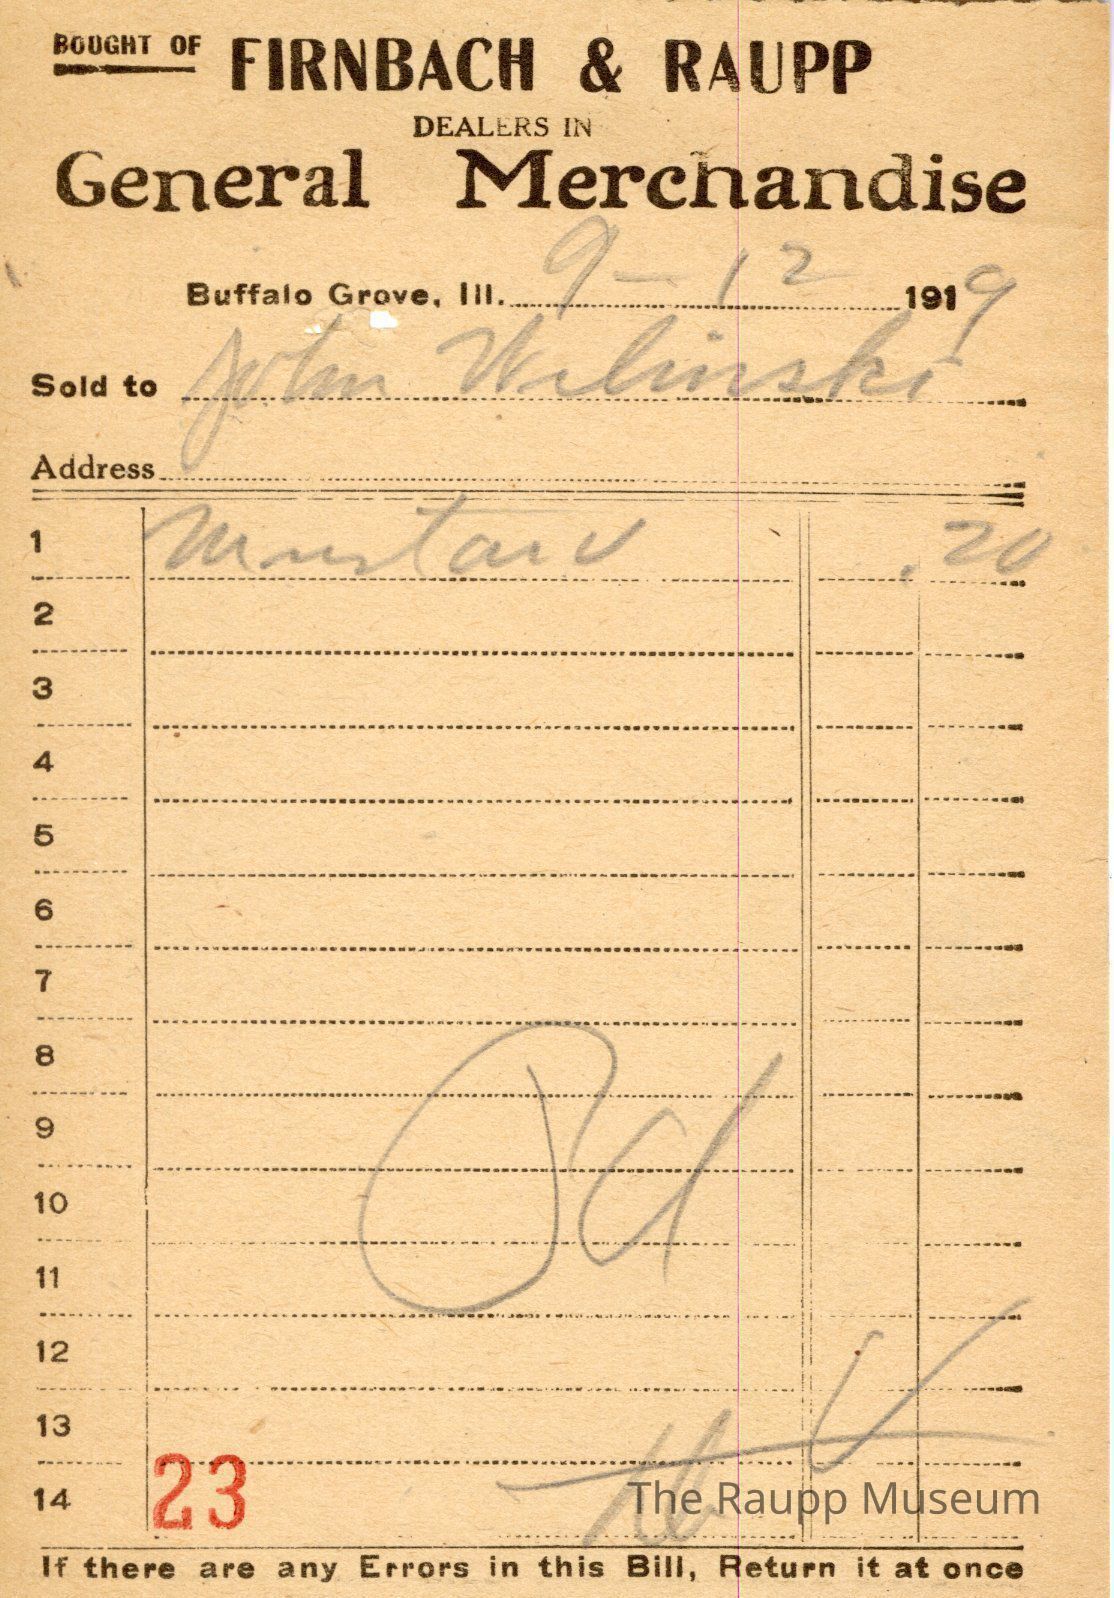 BOUGHT OF FIRNBACH & RAUPP
DEALERS IN
General Merchandise
Buffalo Grove, Ill. 9-12 1919
Sold to John Welinski
Address
1 Mustard .20
2
3
4
5
6
7
8
9
10
11
12
13
14
Pd
23
The Raupp Museum
If there are any Errors in this Bill, Return it at once